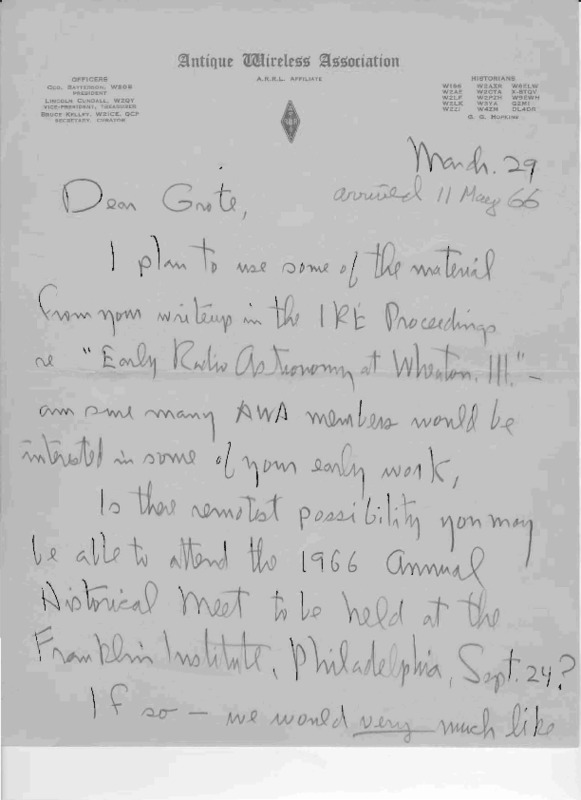 Antique Wireless Association
A.R.R.L. AFFILIATE
OFFICERS
GEO. BATTERSON, W2GB
PRESIDENT
LINCOLN CUNDALL, W2QY
VICE-PRESIDENT, TREASURER
BRUCE KELLEY, W2ICE, QCP
SECRETARY, CURATOR
HISTORIANS
G. G. HOPKINS
March. 29
arrived 11 May 66
Dear Grote,
I plan to use some of the material
from your writeup in the IRE Proceedings
re "Early Radio Astronomy at Wheaton. Ill." -
am sure many AWA members would be
interested in some of your early work,
Is there remotest possibility you may
be able to attend the 1966 Annual
Historical Meet to be held at the
Franklin Institute, Philadelphia, Sept. 24?
If so - we would very much like